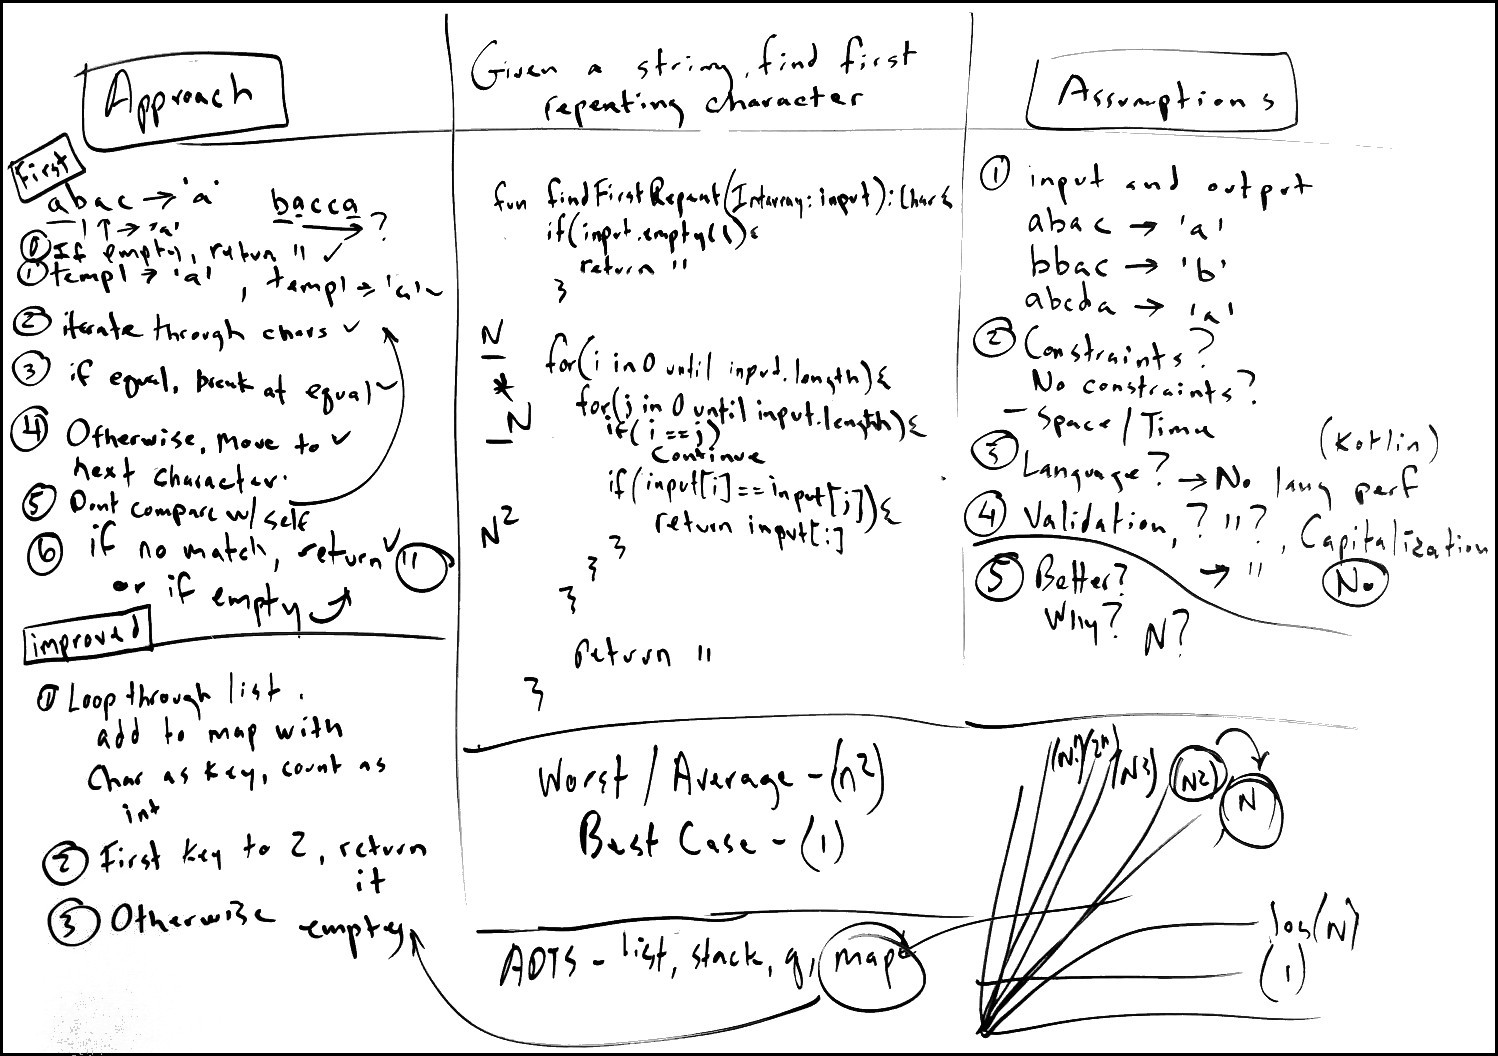 Approach
First
abac → 'a'
bacca
?
↑ → 'a'
⓪ If empty, return '' ✓
① temp1 → 'a', temp1 → 'a' ~
② iterate through chars ✓
③ if equal, break at equal ~
④ Otherwise, move to ✓
next character.
⑤ Dont compare w/ self
⑥ if no match, return ✓ ''
or if empty
improved
① Loop through list.
add to map with
Char as key, count as
int
② First key to 2, return
it
③ Otherwise empty
Given a string, find first
repeating character
fun findFirstRepeat(Intarray: input): Char{
if(input.empty()){
return ''
}
N
*
N
N²
for(i in 0 until input.length){
for(j in 0 until input.length){
if(i == j)
continue
if(input[i] == input[j]){
return input[i]
}
}
}
return ''
}
Worst / Average - (n²)
Best Case - (1)
ADTS - list, stack, q, map
Assumptions
① input and output
abac → 'a'
bbac → 'b'
abcda → 'a'
② Constraints?
No constraints?
- Space / Time
(Kotlin)
③ Language? → No lang perf
④ Validation, ? ''?, Capitalization
→ ''
No
⑤ Better?
Why? N?
(N!) (2ⁿ) (N³) (N²) N
log(N)
(1)